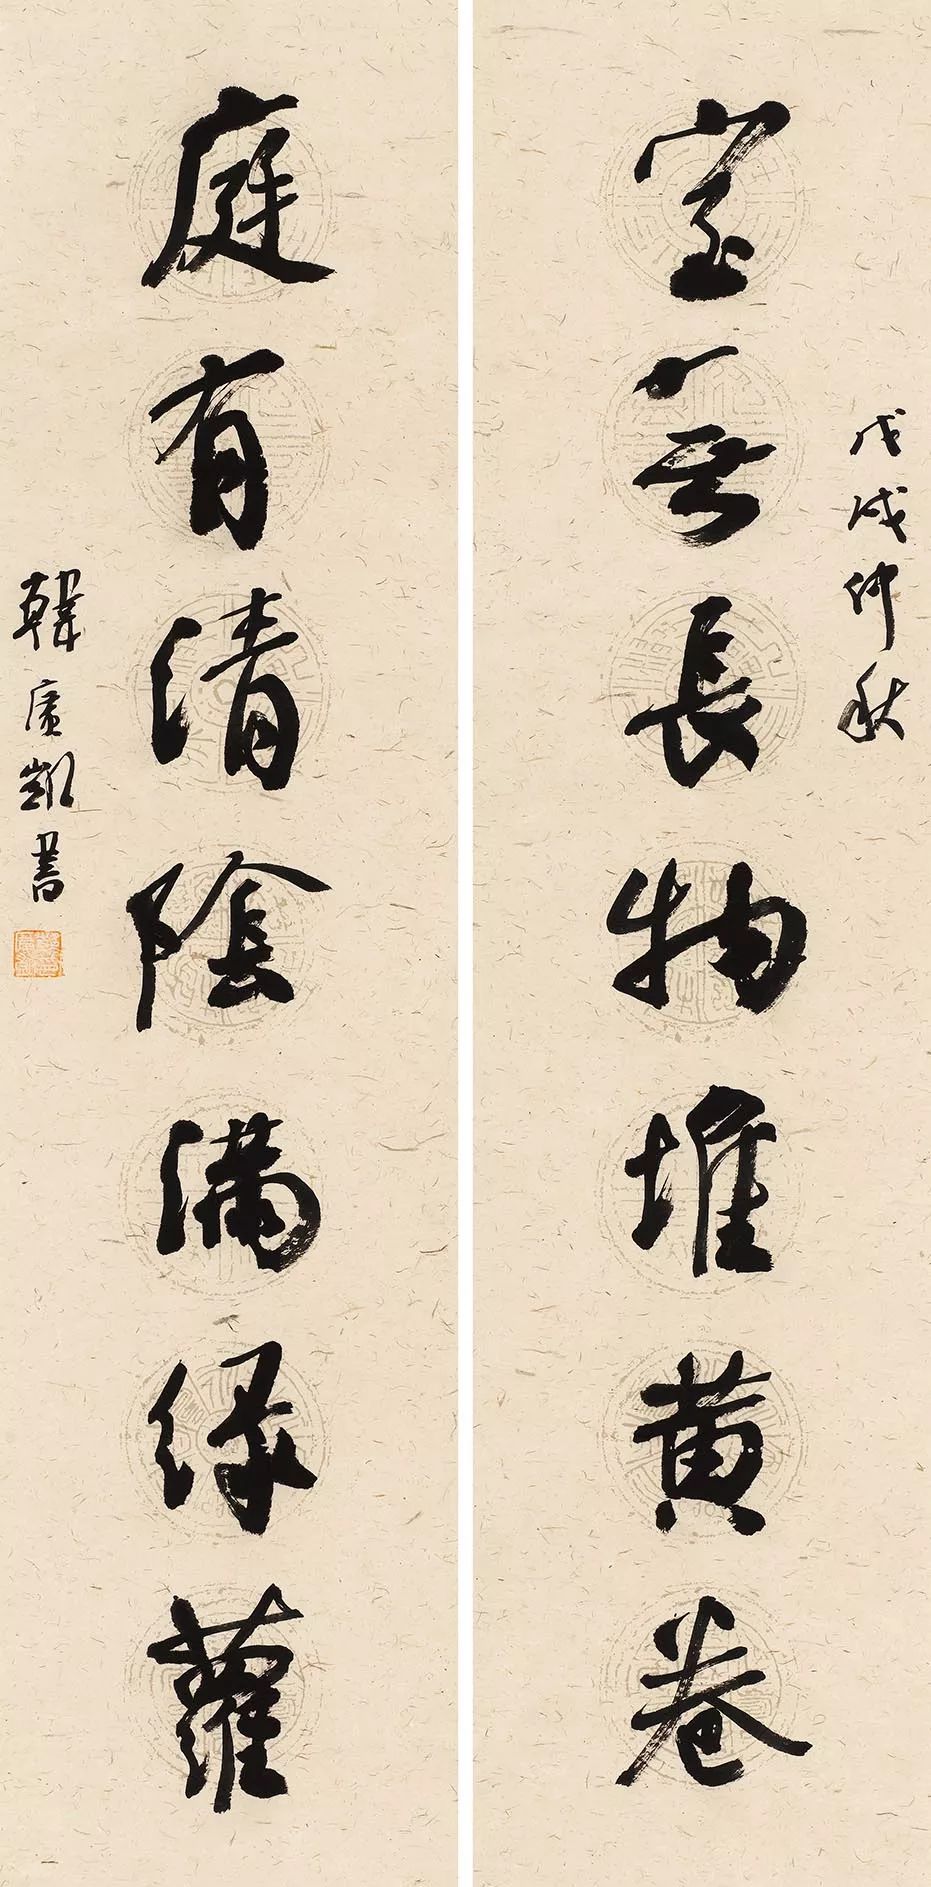 戊戌仲秋
室無長物堆黄卷
庭有清陰滿绿蘿
韓廣凱書